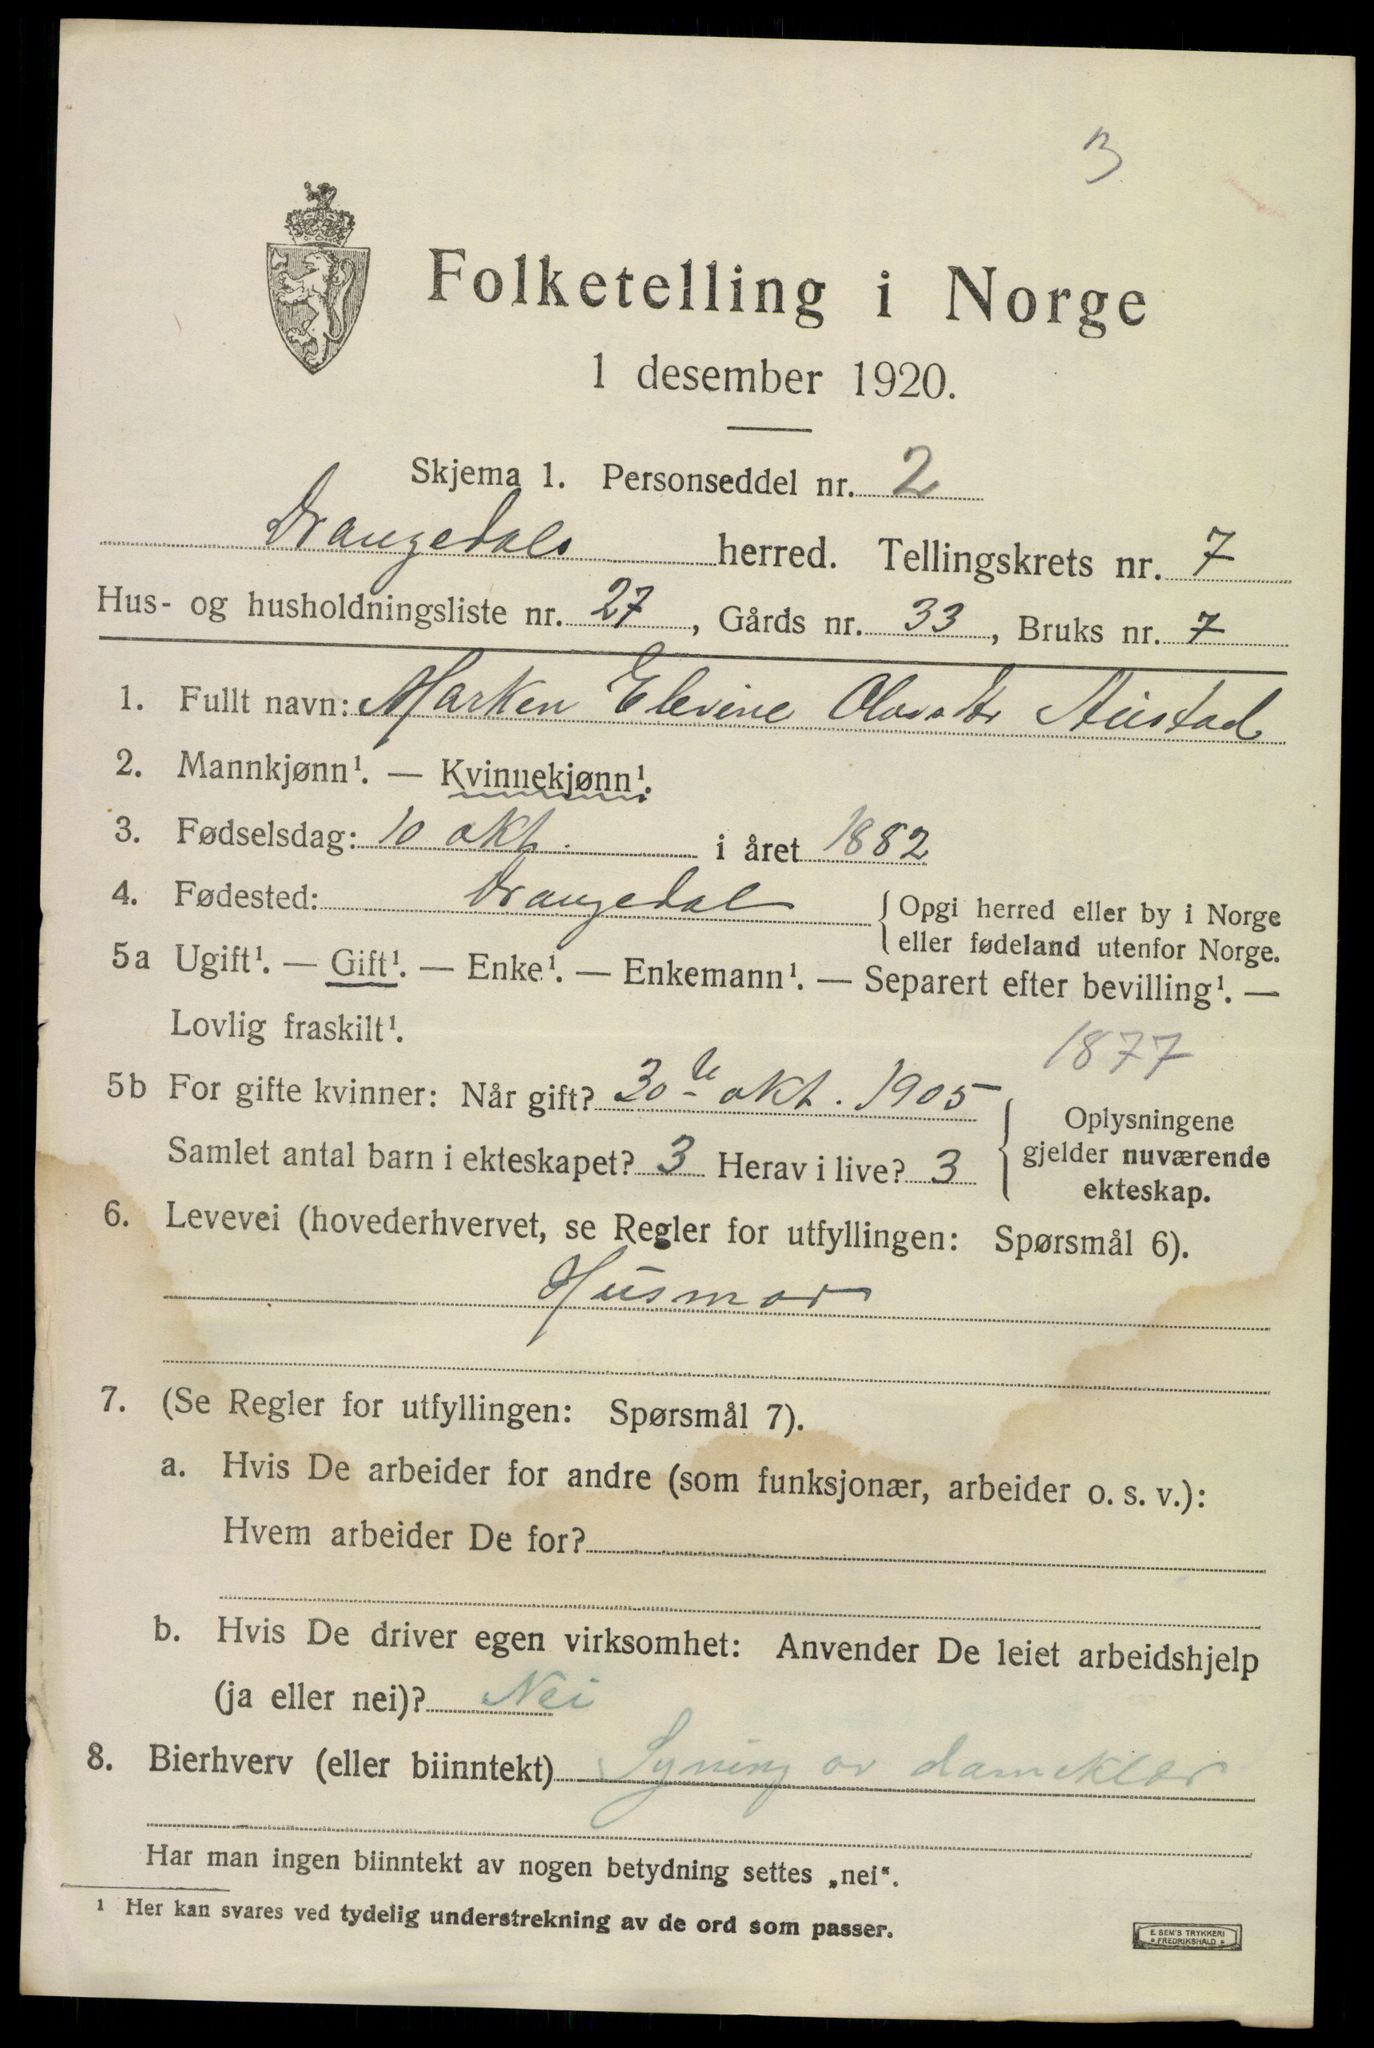 3
Folketelling i Norge
1 desember 1920.
Skjema 1. Personseddel nr. 2
Drangedals herred. Tellingskrets nr. 7
Hus- og husholdningsliste nr. 27, Gårds nr. 33, Bruks nr. 7
1. Fullt navn: Marken Elevine Olavsdtr Austad
2. Mannkjønn¹. — Kvinnekjønn¹.
3. Fødselsdag: 10 okt. i året 1882
4. Fødested: Drangedal { Opgi herred eller by i Norge
eller fødeland utenfor Norge.
5a Ugift¹. — Gift¹. — Enke¹. — Enkemann¹. — Separert efter bevilling¹. —
Lovlig fraskilt¹.
1877
5b For gifte kvinner: Når gift? 30te okt. 1905
Samlet antal barn i ekteskapet? 3 Herav i live? 3
{ Oplysningene
gjelder nuværende
ekteskap.
6. Levevei (hovederhvervet, se Regler for utfyllingen: Spørsmål 6).
Husmor
7. (Se Regler for utfyllingen: Spørsmål 7).
a. Hvis De arbeider for andre (som funksjonær, arbeider o. s. v.):
Hvem arbeider De for?
b. Hvis De driver egen virksomhet: Anvender De leiet arbeidshjelp
(ja eller nei)? Nei
8. Bierhverv (eller biinntekt) Syning av dameklær
Har man ingen biinntekt av nogen betydning settes „nei“.
¹ Her kan svares ved tydelig understrekning av de ord som passer.
E. SEM'S TRYKKERI
* FREDRIKSHALD *